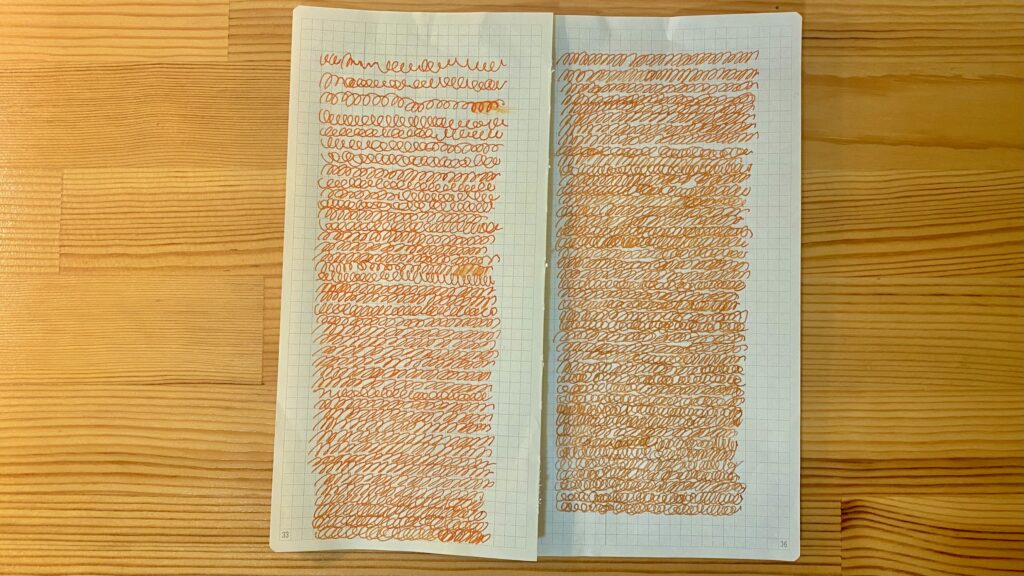 33
36